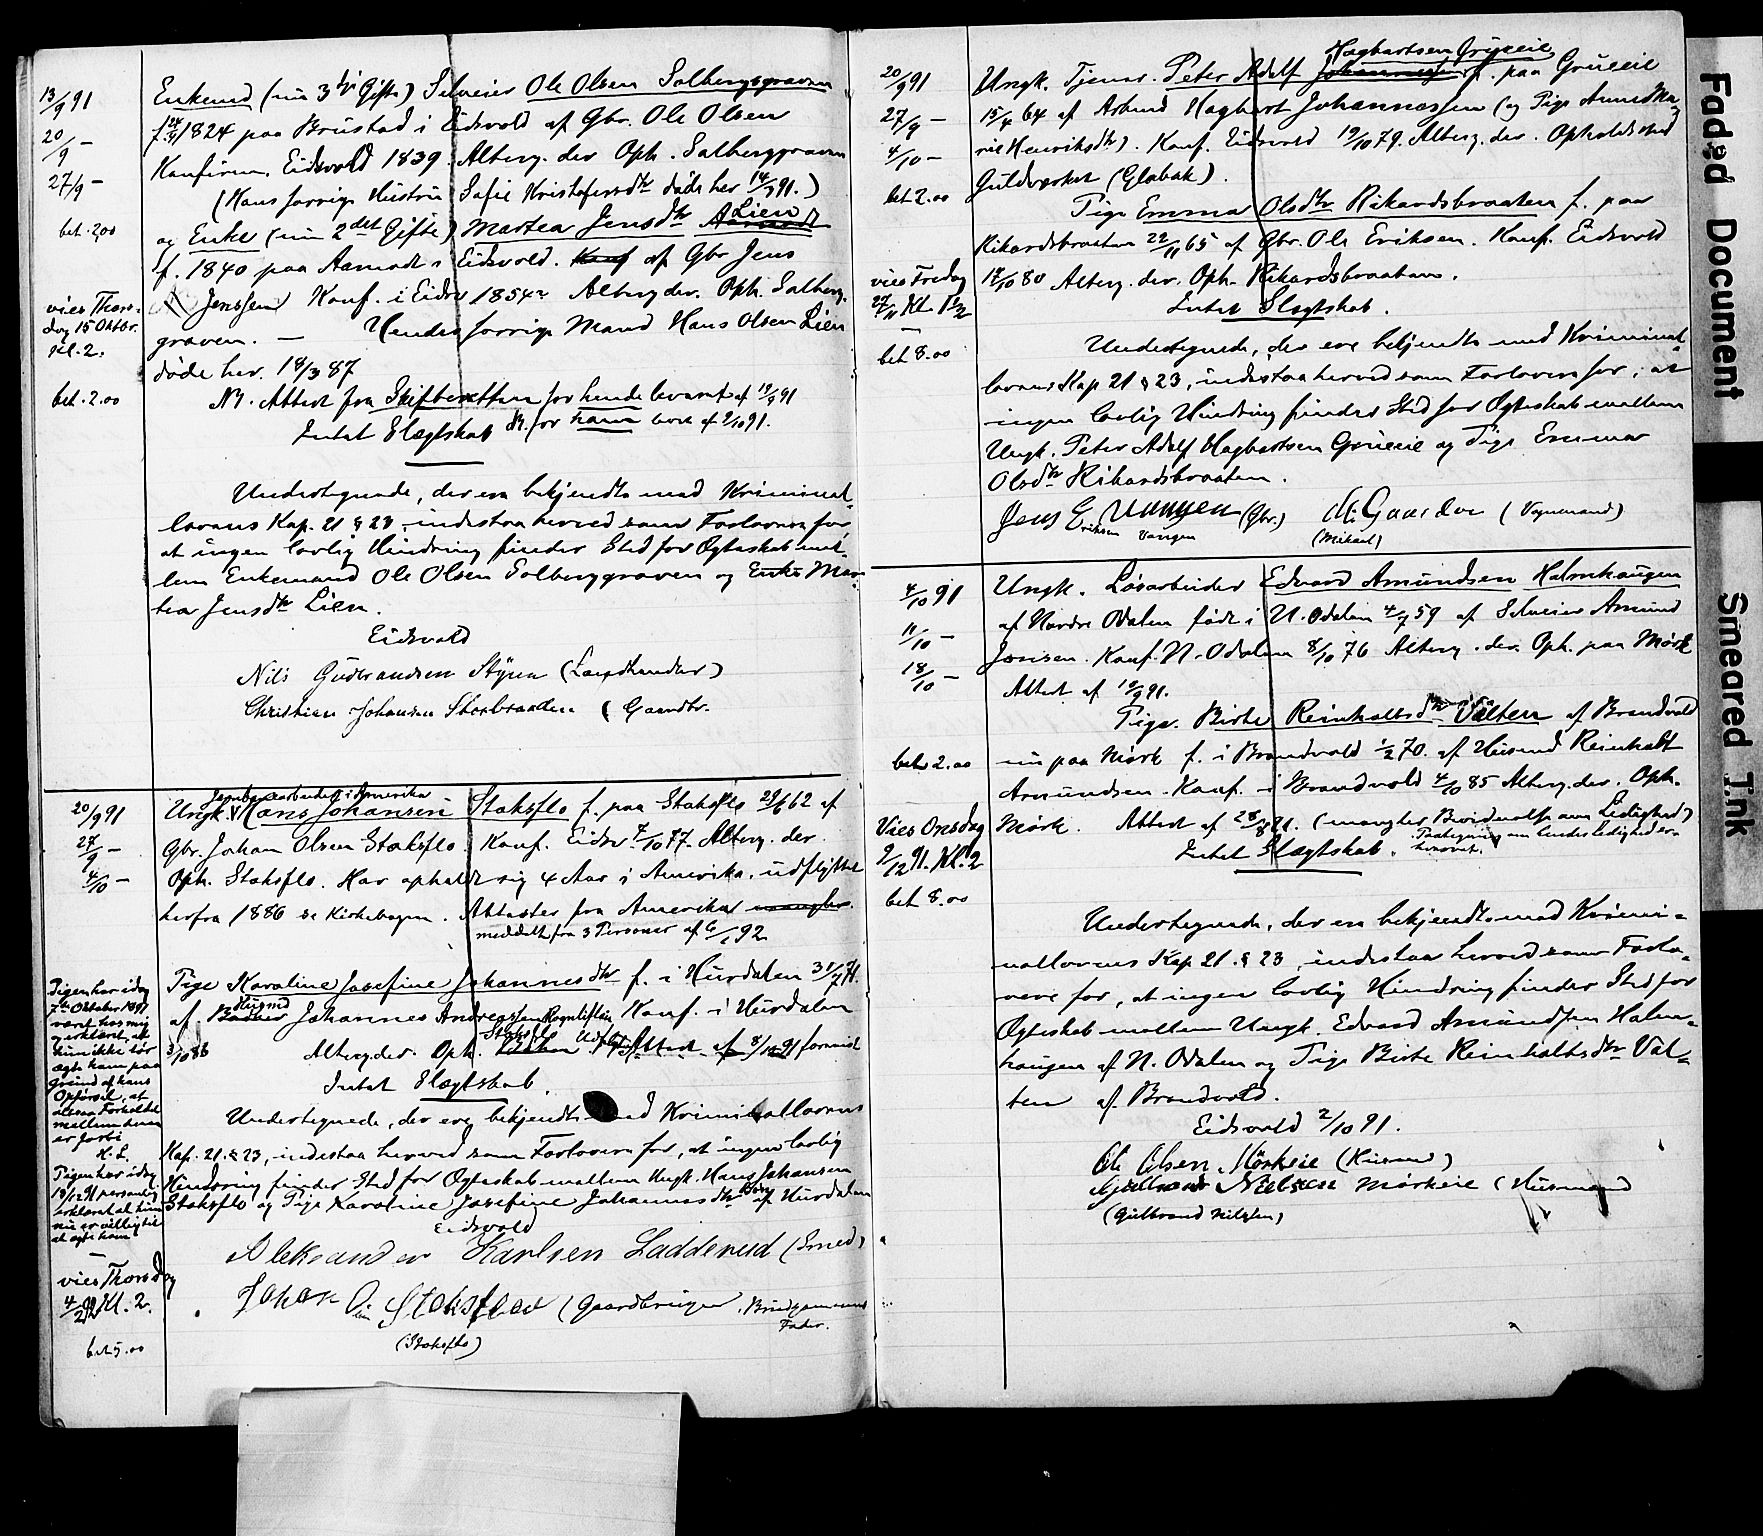 13/9 91
20/9 —
27/9 —
bet. 2,00
vies Thors-
dag 15 Oktbr.
Kl. 2.
bet. 2.00
Enkemd (nu 3die Gifte) Selveier Ole Olsen Solbergsgraven
f. 1824 paa Brustad i Eidsvold af Gbr. Ole Olsen
Konfirm. Eidsvold 1839. Alterg. der Oph. Solberggraven
(Hans forrige Hustru Sofie Kristofersdtr døde her 14/ 91.)
Lien
og Enke (nu 2det Gifte) Martea Jensdtr
f. 1840 paa Aamodt i Eidsvold. Konf af Gbr Jens
Jenssen Konf. i Eidsv 1854 Alterg der. Oph. Solberg-
graven. — Hendes forrige Mand Hans Olsen Lien
døde her. 18/3 87
NB. Attest fra Skifteretten for hende leveret af 19/9 91
Do. for ham lever af 2/10 91.
Intet Slægtskab
Undertegnede, der ere bekjendte med Kriminal-
lovens Kap. 21 § 23, indestaa herved som Forlovere for
at ingen lovlig Hindring finder Sted for Ægteskab mel-
lem Enkemand Ole Olsen Solberggraven og Enke Mar-
tea Jensdtr Lien.
Eidsvold
Nils Gudbrandsen Styra (Landhandler)
Christian Johansen Storbraaden (Gaardbr.
20/9 91
27/9 —
4/10 —
Jernbanearbeider i Amerika
Ungk. Hans Johansen Stoksflo f. paa Stoksflo 29/6 62 af
Gbr. Johan Olsen Stoksflo. Konf. Eidsv. 7/10 77. Alterg. der.
Oph. Stoksflo. Har opholdt sig 4 Aar i Amerika. udflyttet
herfra 1886 se Kirkebogen. Attester fra Amerika mangler.
meddelt fra 3 Personer af 6/1 92
Pigen har idag
7de Oktober 1891
været hos mig
og erklæret, at
hun ikke tør
ægte ham paa
Grund af hans
Opførsel, at
altsaa Forholdet
mellem dem
er forbi
H. L.
Pigen har idag
19/12 91 personlig
erklæret at hun
nu er villig til
at ægte ham
—
vies Thorsdag
4/2 92 Kl. 2.
bet 5.00
Pige Karoline Josefine Johannesdtr f. i Hurdalen 31/7 71.
Husmd
af Johannes Andreassen Konf. i Hurdalen
3/10 86
Stoksflo Udfl.
Alterg der. Oph. Attest af 8/10 91 formidt
Intet Slægtskab.
Undertegnede, der ere bekjendte med Kriminallovens
Kap. 21. § 23, indestaa herved som Forlovere for, at ingen lovlig
Hindring finder Sted for Ægteskab mellem Ungk. Hans Johansen
Stoksflo og Pige Karoline Josefine Johannesdtr af Hurdalen
Eidsvold
Aleksander Karlsen Ladderud (Smed)
Johan O Stoksflo (Gaardbruger, Brudgommens
Fader.
(Stoksflo)
20/9 91
27/9 —
4/10 —
bet 2.00
vies Fredag
27/11 Kl. 1 1/2
—
bet 8.00
Hagbartsen Grüeeie
Ungk. Tjener. Peter Adolf Johannes f. paa Grüeeie
15/4 64 af Arbmd Hagbart Johannessen (og Pige Anne Ma-
rie Henriksdtr). Konf. Eidsvold 19/10 79. Alterg. der. Opholdssted
Guldverket (Globak).
Pige Emma Olsdtr Rikardsbraaten f. paa
Rikardsbraaten 22/11 65 af Gbr. Ole Eriksen. Konf. Eidsvold
17/10 80 Alterg. der. Oph. Rikardsbraaten.
Intet Slægtskab.
Undertegnede, der ere bekjendte med Kriminal-
lovens Kap. 21 § 23, indestaa herved som Forlovere for, at
ingen lovlig Hindring finder Sted for Ægteskab mellem
Ungk. Peter Adolf Hagbartsen Grüeeie og Pige Emma
Olsdtr Rikardsbraaten.
Jens E Vangen (Gbr.) M. Gaarder (Vognmand)
Eriksen Vangen (Mikael)
4/10 91
11/10 —
18/10 —
bet 2.00
Vies Onsdag
9/12 91. Kl. 2
bet 8.00
Ungk. Løsarbeider Edvard Amundsen Holmhaugen
af Nordre Odalen født i N. Odalen 4/7 59 af Selveier Amund
Jonsen. Konf. N. Odalen 8/10 76 Alterg. der. Oph. paa Mørk
Attest af 19/9 91.
Pige. Birte Reinholtsdtr Valten af Brandvold
nu paa Mørk f. i Brandvold 1/2 70. af Husmd Reinholdt
Amundsen. Konf. i Brandvold 4/10 85 Alterg. der. Oph.
Mørk. Attest af 28/8 91. (mangler Bevidnelse om Ledighed)
Paategning om hendes Ledighed er
Intet Slægtskab.
Undertegnede, der ere bekjendte med Krimi-
nallovens Kap 21. § 23, indestaa herved som Forlo-
vere for, at ingen lovlig Hindring finder Sted for
Ægteskab mellem Ungk. Edvard Amundsen Holm-
haugen af N. Odalen og Pige Birte Reinholtsdtr Val-
ten af Brandvold.
Eidsvold 2/10 91.
Ole Olsen Mørkeie (Husmd)
Gulbrand Nielsen Mørkeie (Husmand
(Gulbrand Nilsen)
Faded Document
Smeared Ink